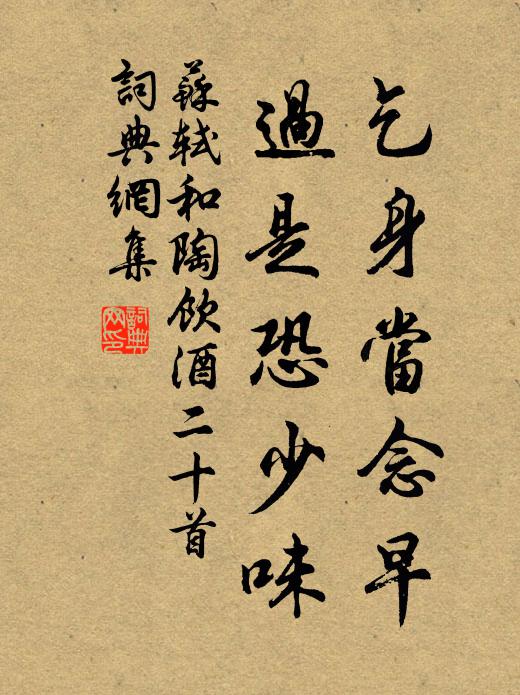 乞身當念早
過是恐少味
蘇軾和陶飲酒二十首
詞典網集
詞典网印